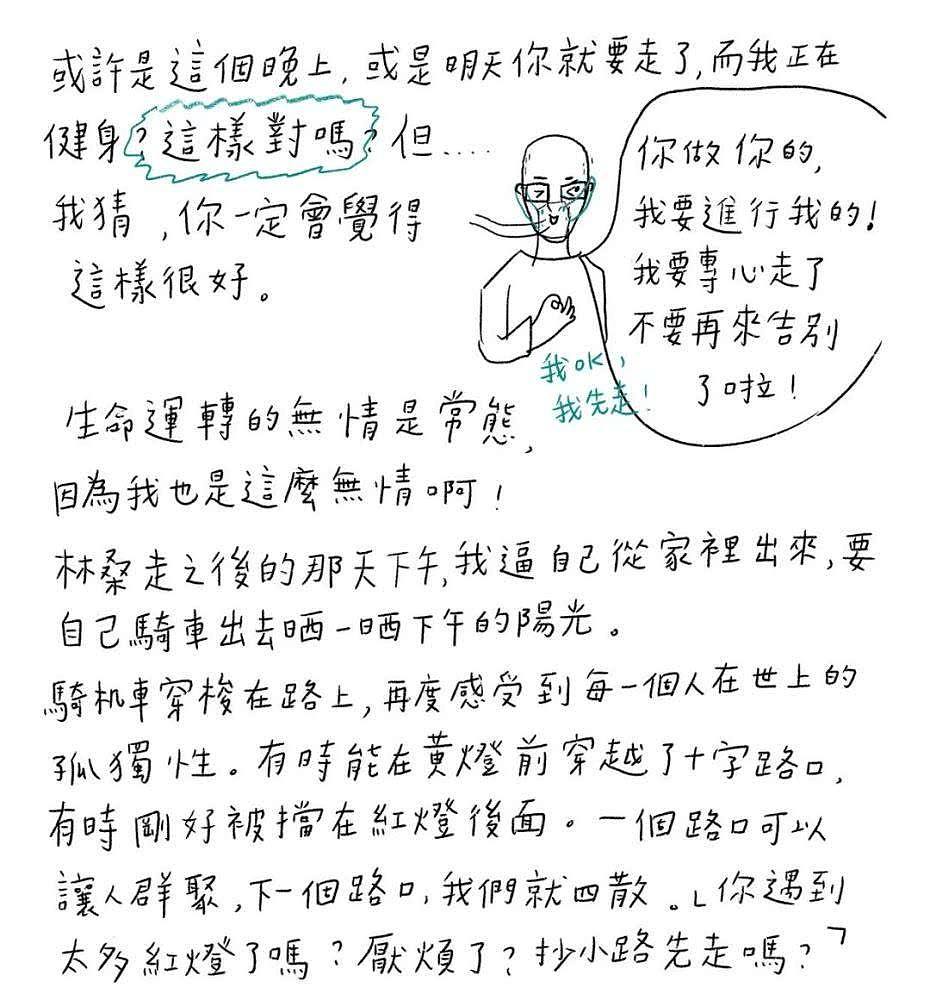 或許是這個晚上, 或是明天你就要走了, 而我正在
健身? 這樣對嗎? 但....
我猜, 你一定會覺得
這樣很好。
你做你的,
我要進行我的!
我要專心走了
不要再來告別
了啦!
我OK,
我先走!
生命運轉的無情是常態,
因為我也是這麼無情啊!
林桑走之後的那天下午, 我逼自己從家裡出來, 要
自己騎車出去晒一晒下午的陽光。
騎机車穿梭在路上, 再度感受到每一個人在世上的
孤獨性。有時能在黃燈前穿越了十字路口,
有時剛好被擋在紅燈後面。一個路口可以
讓人群聚, 下一個路口, 我們就四散。「你遇到
太多紅燈了嗎? 厭煩了? 抄小路先走嗎?」